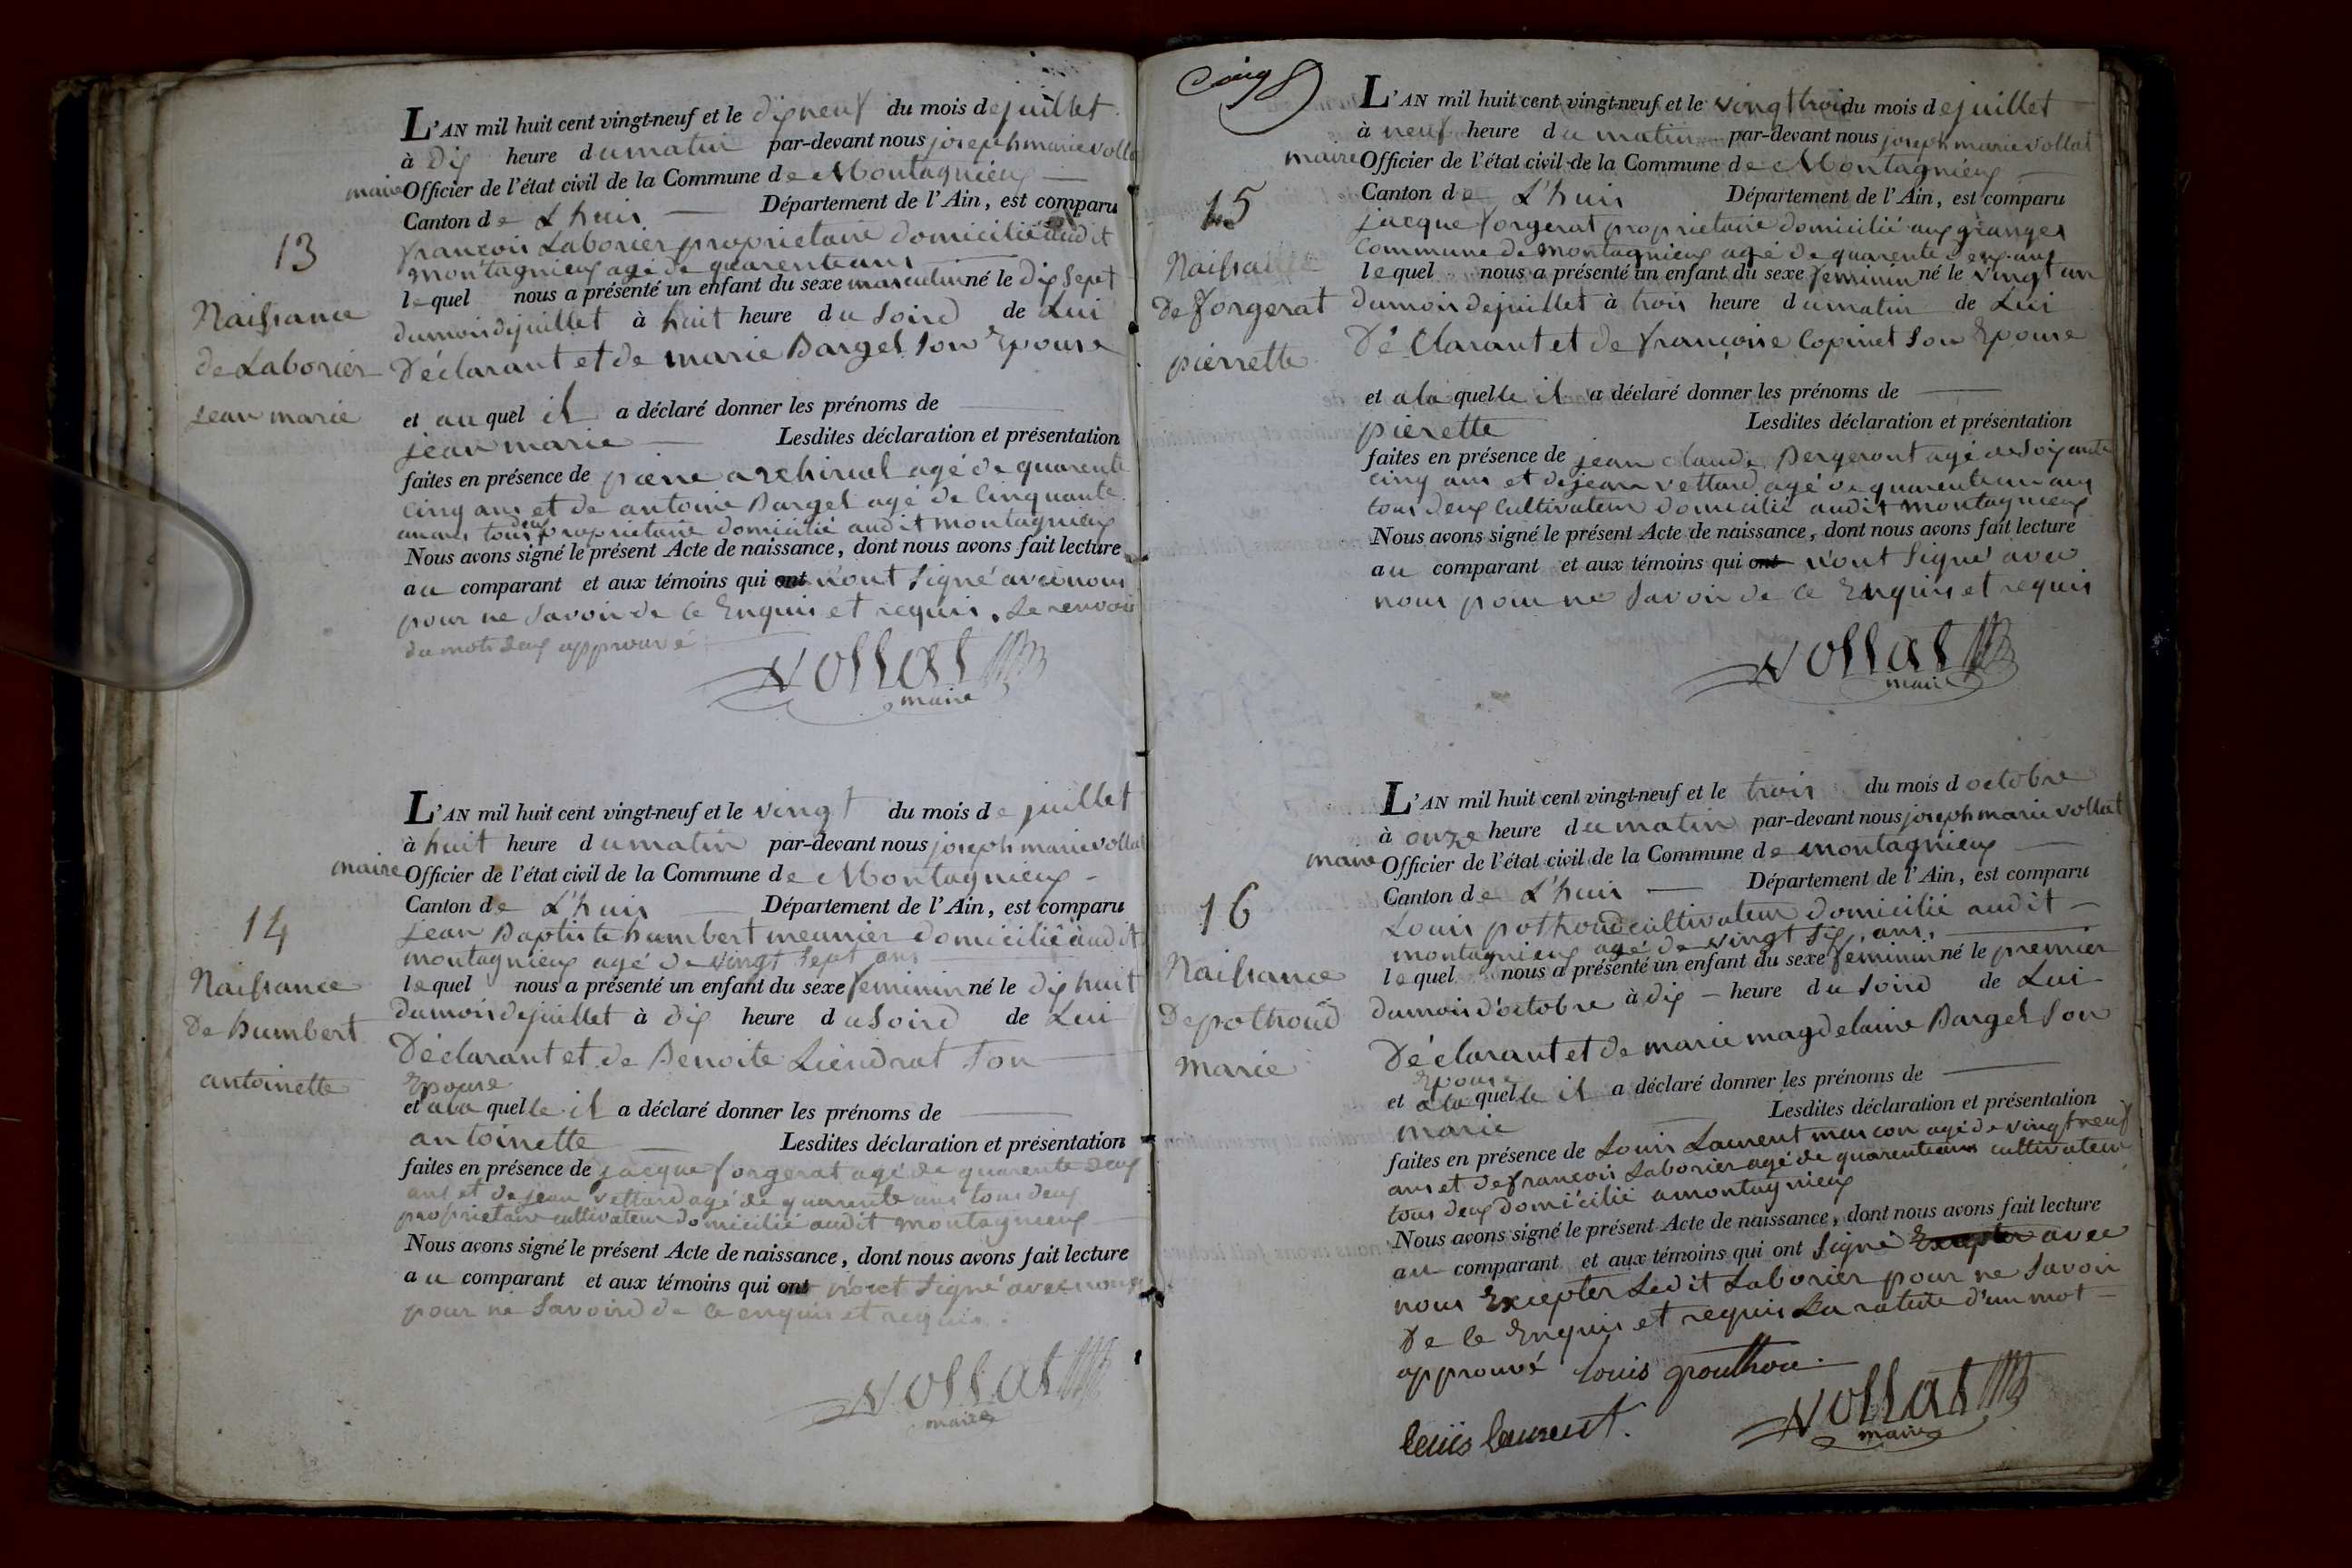 L'AN mil huit cent vingt-neuf et le dix neuf du mois de juillet
à dix heure du matin par-devant nous joseph marie vollat
maire Officier de l'état civil de la Commune de Montagnieux
Canton de L'huis Département de l'Ain, est comparu
françois Laborier proprietaire domicilié audit
montagnieux agé de quarente ans
lequel nous a présenté un enfant du sexe masculin né le dix sept
du mois de juillet à huit heure du soird de Lui
Déclarant et de marie Bargel son Epouse
et au quel il a déclaré donner les prénoms de
jean marie Lesdites déclaration et présentation
faites en présence de pierre agé de quarente
cinq ans et de antoine Bargel agé de cinquante
tous deux proprietaire domicilié audit montagnieux
Nous avons signé le présent Acte de naissance, dont nous avons fait lecture
au comparant et aux témoins qui ont n'ont signé avec nous
pour ne savoir de ce Enquis et requis. Le renvois
du mots deux approuvé
vollat
maire
13
Naissance
de Laborier
jean marie
L'AN mil huit cent vingt-neuf et le vingt du mois de juillet
à huit heure du matin par-devant nous joseph marie vollat
maire Officier de l'état civil de la Commune de Montagnieux
Canton de L'huis Département de l'Ain, est comparu
jean Baptiste humbert meunier domicilié audit
montagnieux agé de vingt sept ans
lequel nous a présenté un enfant du sexe feminin né le dix huit
du mois de juillet à dix heure du soird de Lui
Déclarant et de Benoite Liendrat son
Epouse
et a la quelle il a déclaré donner les prénoms de
antoinette Lesdites déclaration et présentation
faites en présence de jacque forgerat agé de quarente deux
ans et de jean vettard agé de quarente ans tous deux
proprietaire cultivateur domicilié audit montagnieux
Nous avons signé le présent Acte de naissance, dont nous avons fait lecture
au comparant et aux témoins qui ont n'ont signé avec nous
pour ne savoird de ce enquis et requis.
vollat
maire
14
Naissance
De humbert
antoinette
Cinq
L'AN mil huit cent vingt-neuf et le vingt trois du mois de juillet
à neuf heure du matin par-devant nous joseph marie vollat
maire Officier de l'état civil de la Commune de Montagnieux
Canton de L'huis Département de l'Ain, est comparu
jacque forgerat proprietaire domicilié aux granges
Commune de montagnieux agé de quarente deux ans
lequel nous a présenté un enfant du sexe feminin né le vingt un
du mois de juillet à trois heure du matin de Lui
Déclarant et de françoise Copinet son Epouse
et a la quelle il a déclaré donner les prénoms de
pierette Lesdites déclaration et présentation
faites en présence de jean claude Bergeront agé de soixante
cinq ans et de jean vettard agé de quarente un ans
tous deux cultivateur domicilié audit montagnieux
Nous avons signé le présent Acte de naissance, dont nous avons fait lecture
au comparant et aux témoins qui ont n'ont signé avec
nous pour ne savoir de ce Enquis et requis
vollat
maire
15
Naissance
De forgerat
pierrette
L'AN mil huit cent vingt-neuf et le trois du mois d octobre
à onze heure du matin par-devant nous joseph marie vollat
maire Officier de l'état civil de la Commune de montagnieux
Canton de L'huis Département de l'Ain, est comparu
Louis pothoud cultivateur domicilié audit
montagnieux agé de vingt six ans
lequel nous a présenté un enfant du sexe feminin né le premier
du mois d'octobre à dix heure du soird de Lui
Déclarant et de marie magdelaine Bargel son
Epouse
et a la quelle il a déclaré donner les prénoms de
marie Lesdites déclaration et présentation
faites en présence de Louis Laurent macon agé de vingt neuf
ans et de françois Laborier agé de quarente ans cultivateur
tous deux domicilié a montagnieux
Nous avons signé le présent Acte de naissance, dont nous avons fait lecture
au comparant et aux témoins qui ont signé Excepter avec
nous Excepter Ledit Laborier pour ne savoir
De ce Enquis et requis La rature d'un mot
approuvé louis
louis laurent.
vollat
maire
16
Naissance
De pothoud
marie